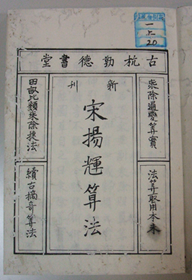 古杭勤德書堂
新刊
宋揚輝算法
乘除通變算寶
法算取用本末
田畝比類乘除捷法
續古摘奇算法